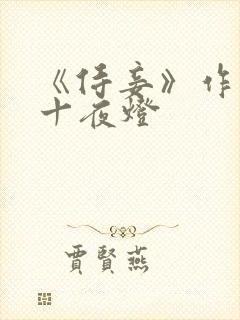 《侍妾》作
十夜燈
賈賢燕